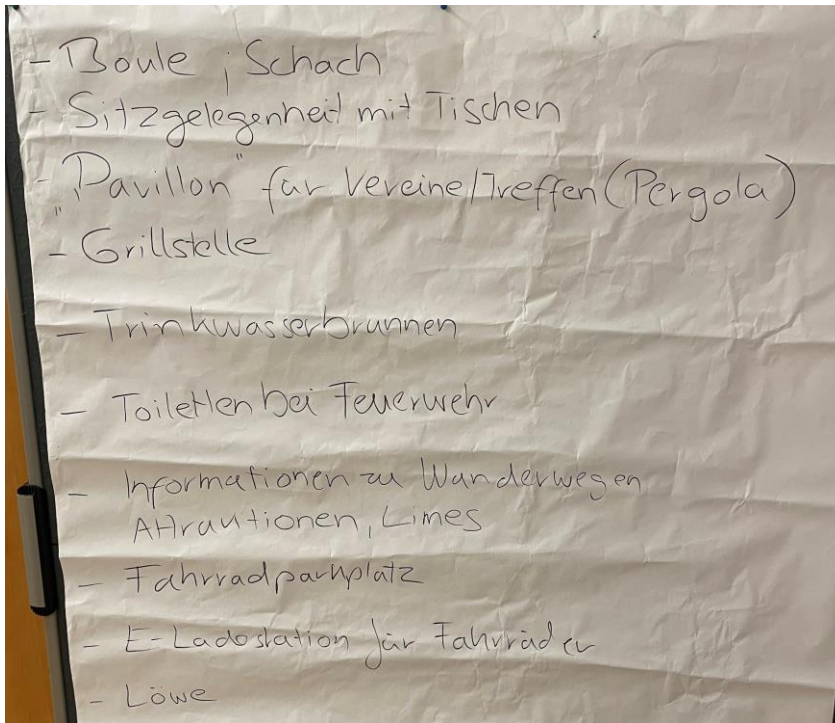 - Boule, Schach
- Sitzgelegenheit mit Tischen
- „Pavillon" für Vereine/Treffen (Pergola)
- Grillstelle
- Trinkwasserbrunnen
- Toiletten bei Feuerwehr
- Informationen zu Wanderwegen
Attraktionen, Limes
- Fahrradparkplatz
- E-Ladestation für Fahrräder
- Löwe